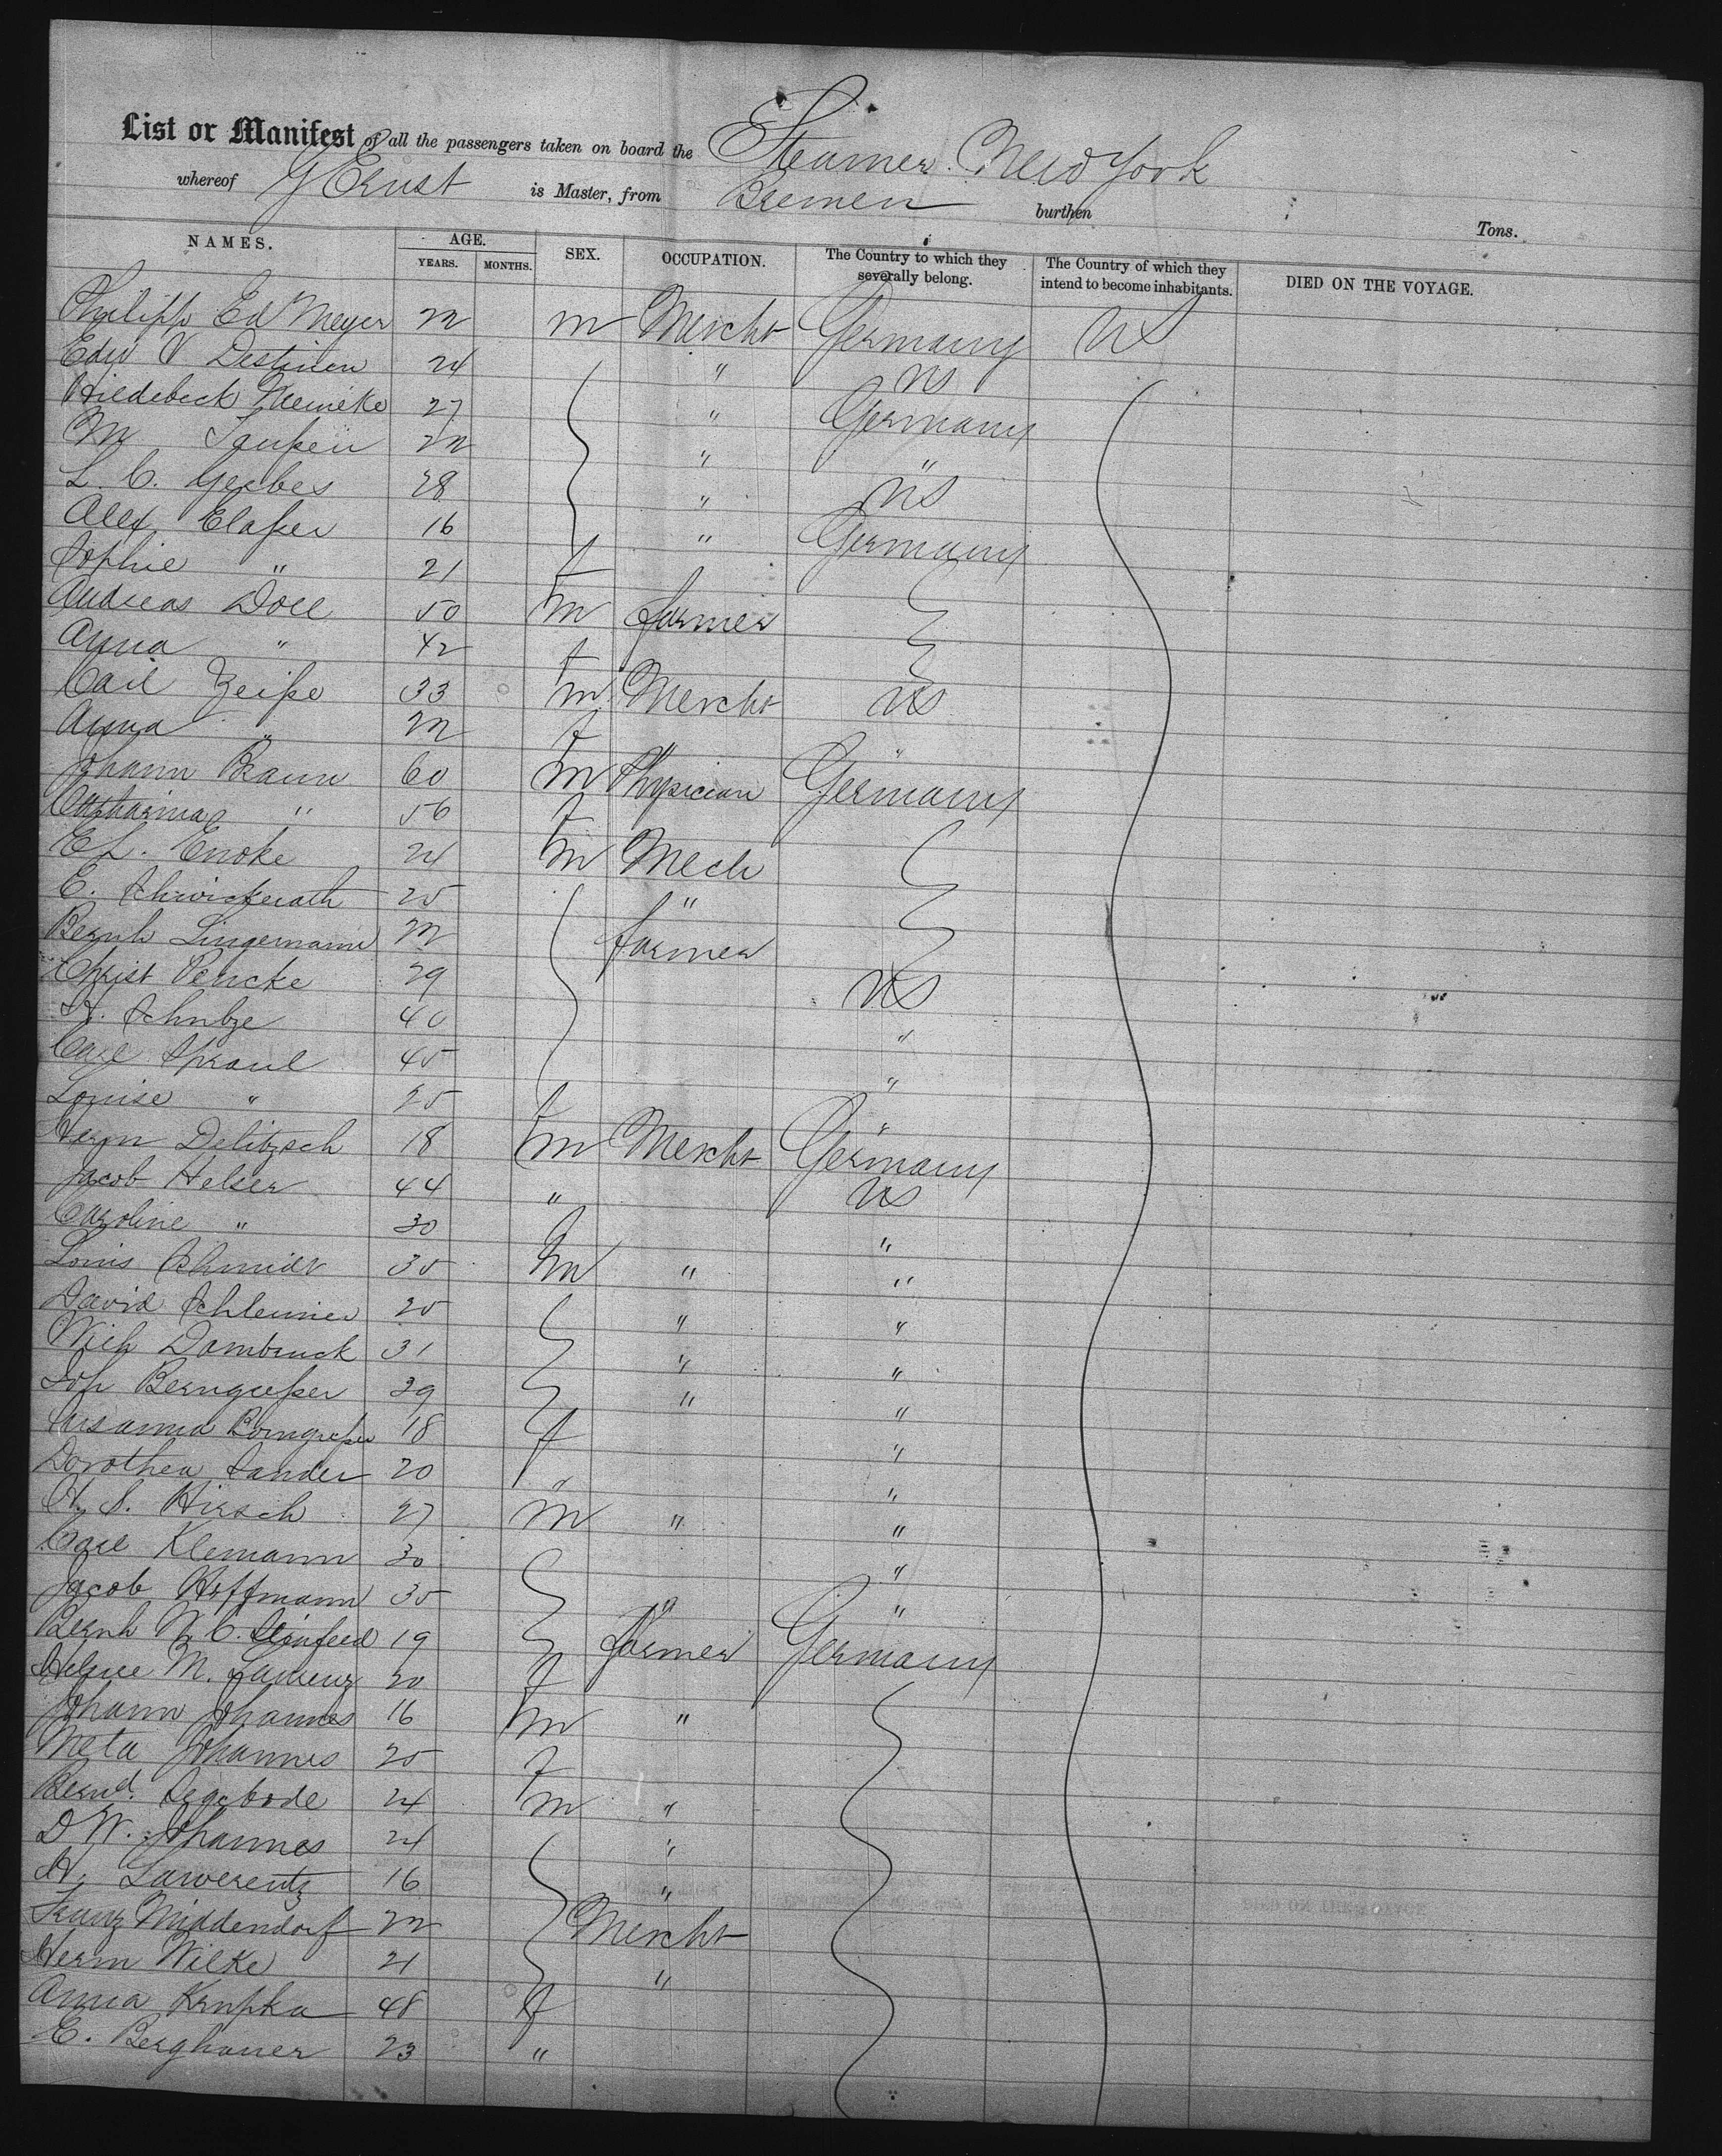 List or Manifest of all the passengers taken on board the Steamer New York
whereof G Ernst is Master, from Bremen burthen Tons.
NAMES. AGE. YEARS. MONTHS. SEX. OCCUPATION. The Country to which they severally belong. The Country of which they intend to become inhabitants. DIED ON THE VOYAGE.
Philipp Ed Meyer 22 m Mercht Germany US
Edw V Destinen 24 " US
Hildebeck Meineke 27 " Germany
M 22 " "
L. C. Gerbes 28 " US
Alex Elaßer 16 " Germany
Sophie " 21 f
Andreas Doll 50 m farmer
Anna " 42 f
Carl Zeiße 33 m Mercht US
Anna " 22 f "
Johann Braun 60 m Physician Germany
Catharina " 56 f
E L. Enoke 24 m Mech
E. 25 "
Bernh Lingemann 22 farmer
Christ Pencke 29 US
H. Schulze 40 "
Carl Spraul 45 "
Louise " 25 f "
Herm Delitzsch 18 m Mercht Germany
Jacob Helser 44 " US
Caroline " 30 f "
Louis Schmidt 35 m " "
David Schleunier 25 " "
Wilh Dambruck 31 " "
Joh Berngießer 39 " "
Susanna Berngießer 18 f "
Dorothea Sander 20 " "
H. S. Hirsch 27 m " "
Carl Klemann 30 "
Jacob Hoffmann 35 " "
Bernh N. C. 19 farmer Germany
Helene M. Laurenz 20 f
Johann Johannes 16 m "
Meta Johannes 25 f
Bernd. Segebode 24 m "
D W. Johannes 24 "
H. Lawerentz 16 "
Franz Middendorf 22 Mercht
Herm Wilke 21 "
Anna Krupka 48 f
E. Berghauer 23 "